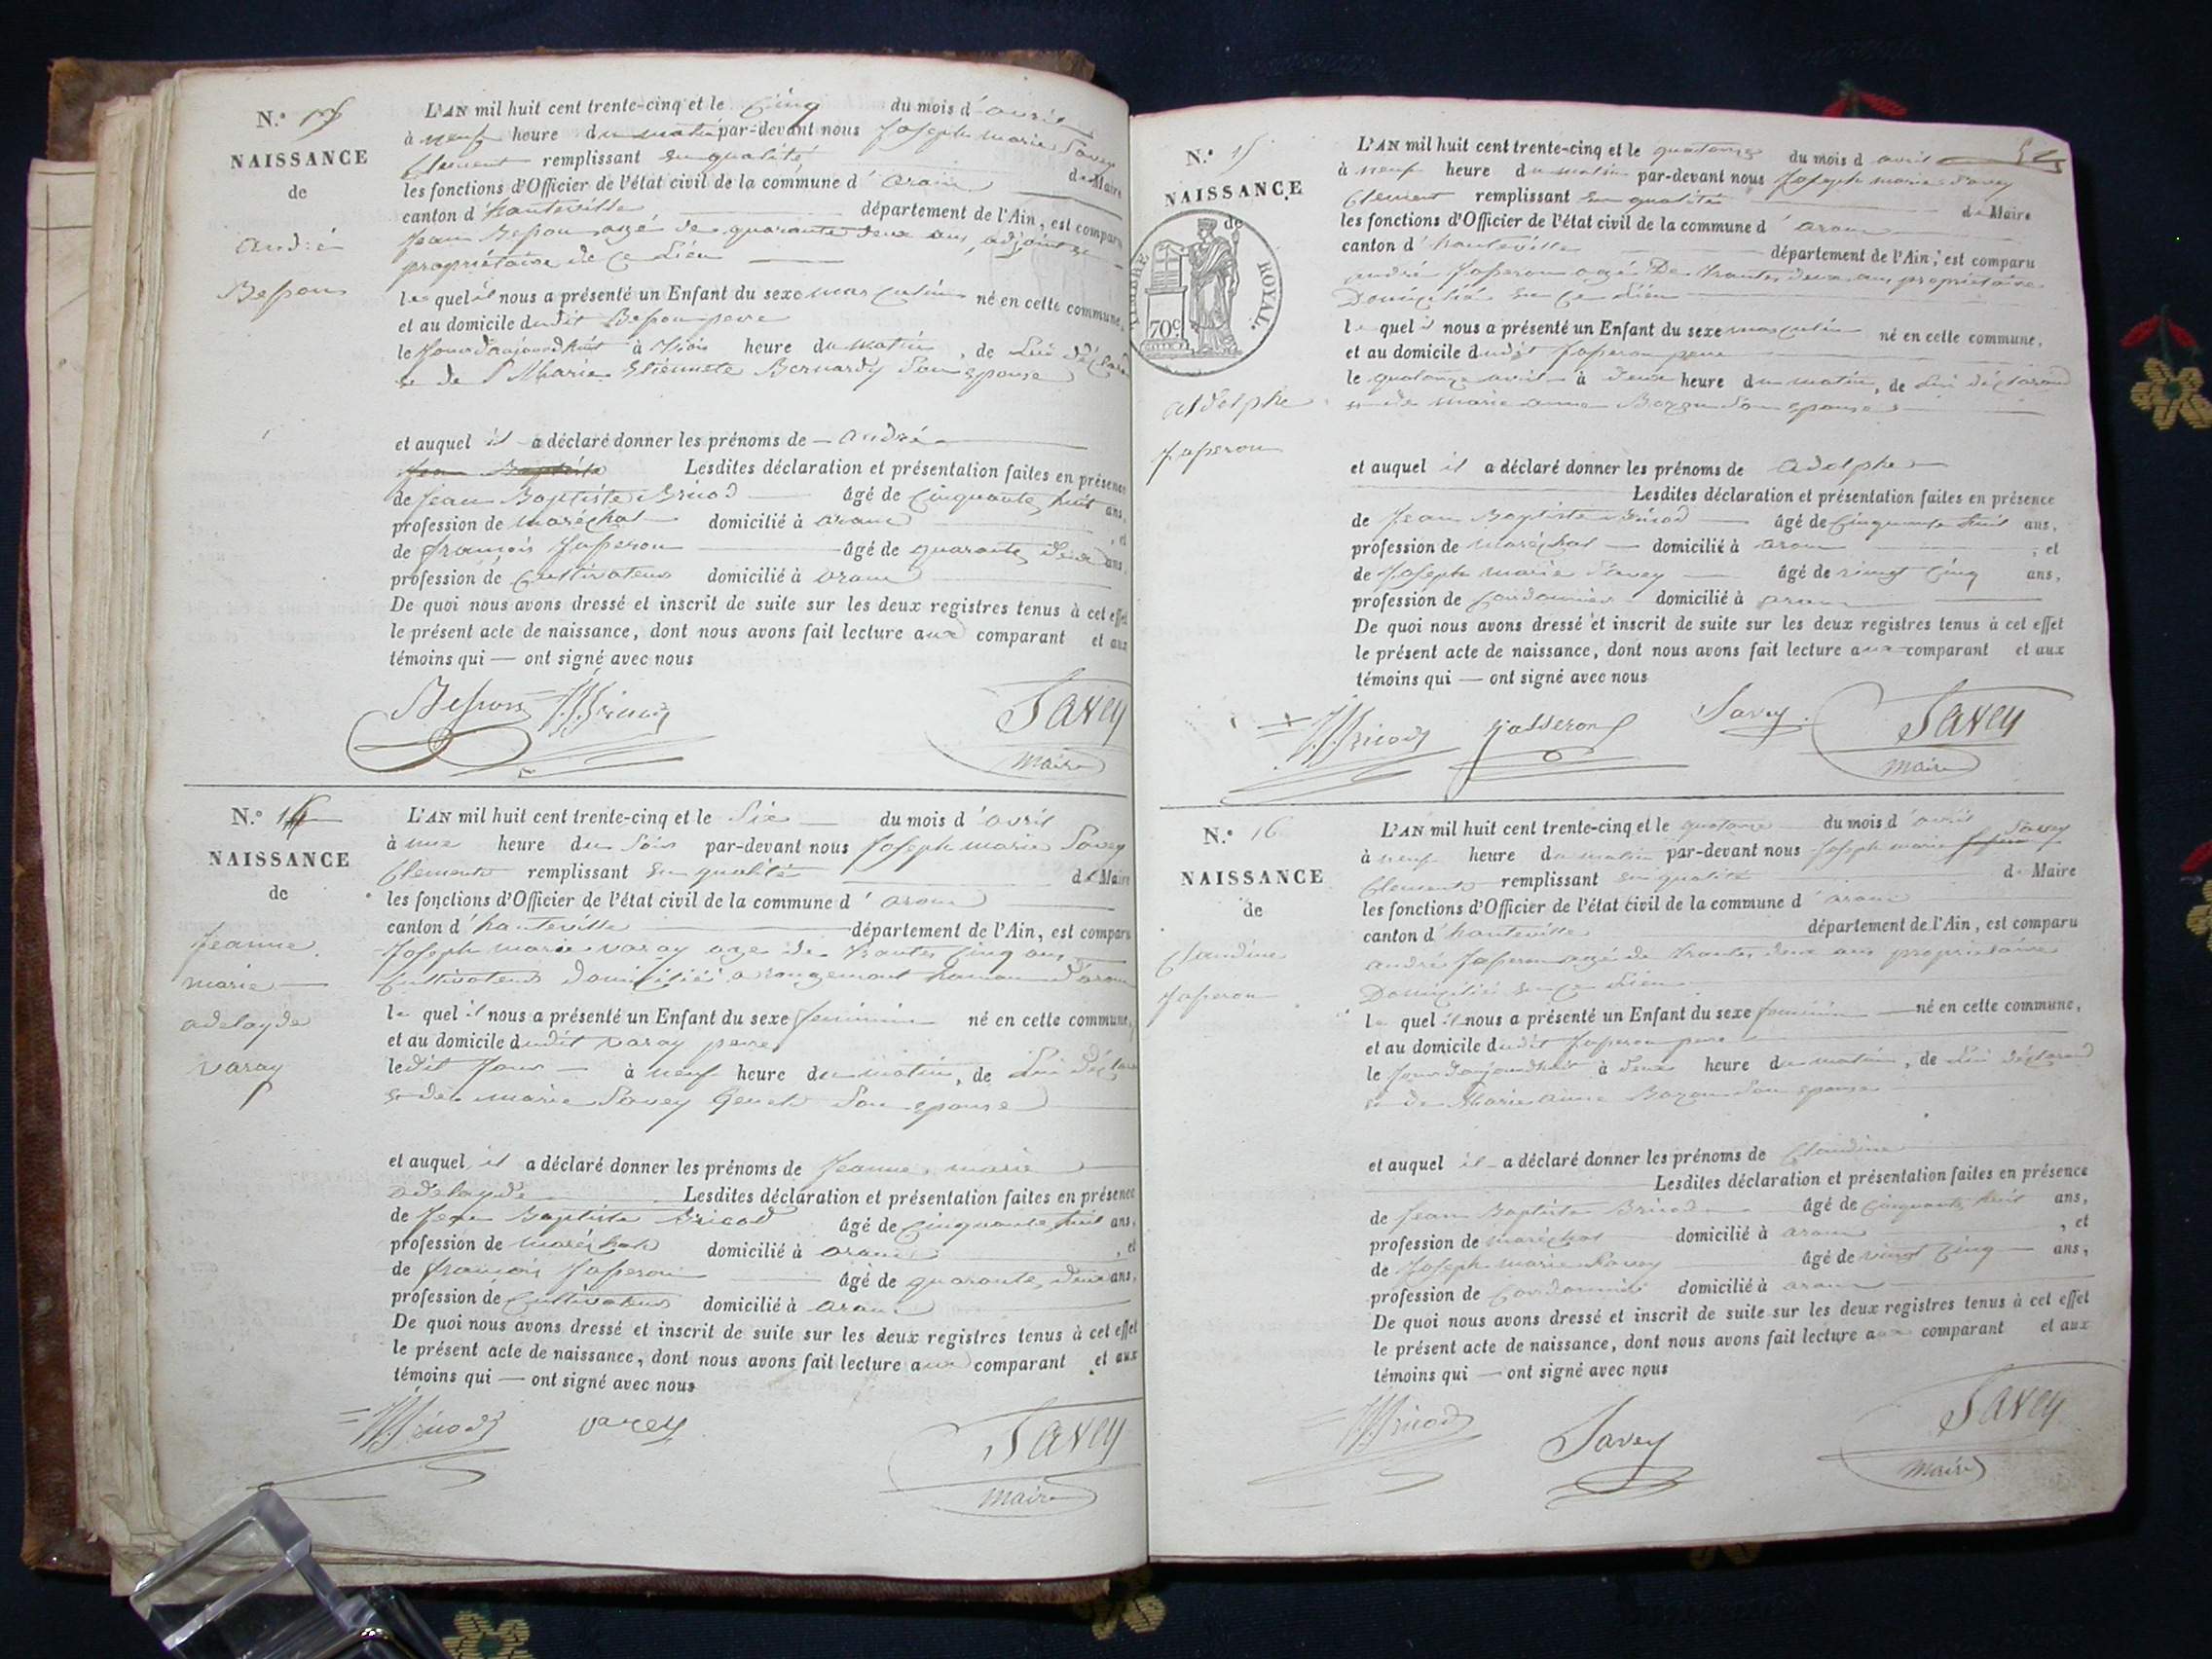 N.°
NAISSANCE
de
andré
Besson
L'AN mil huit cent trente-cinq et le Cinq du mois d'avril
à neuf heure du matin par-devant nous Joseph marie Savey
Clement remplissant en qualité de Maire
les fonctions d'Officier de l'état civil de la commune d'aranc
canton d'hauteville département de l'Ain, est comparu
Jean Besson agé de quarante deux ans, adjoint et
propriétaire de ce Lieu
lequel il nous a présenté un Enfant du sexe masculin né en cette commune,
et au domicile dudit Besson pere
le Jourdaujourdhuit à trois heure du matin, de Lui déclarant
et de Marie Etiennete Bernardy Son epouse
et auquel il a déclaré donner les prénoms de andré
Jean Baptiste Lesdites déclaration et présentation faites en présence
de Jean Baptiste Bricod âgé de Cinquante huit ans,
profession de maréchal domicilié à aranc, et
de françois Jasseron âgé de quarante deux ans,
profession de Cultivateur domicilié à aranc
De quoi nous avons dressé et inscrit de suite sur les deux registres tenus à cet effet
le présent acte de naissance, dont nous avons fait lecture aux comparant et aux
témoins qui — ont signé avec nous
Besson JBBricod Savey
Maire
N.° 14
NAISSANCE
de
Jeanne
marie
adelayde
varay
L'AN mil huit cent trente-cinq et le Six du mois d'avril
à une heure du Soir par-devant nous Joseph marie Savey
Clement remplissant en qualité de Maire
les fonctions d'Officier de l'état civil de la commune d'aranc
canton d'hauteville département de l'Ain, est comparu
Joseph marie varay age de trente Cinq ans
Cultivateur domicilié a rougemont hameau d'aranc
lequel il nous a présenté un Enfant du sexe feminin né en cette commune,
et au domicile dudit varay pere
ledit Jour à neuf heure du matin, de Lui déclarant
et de marie Savey Son epouse
et auquel il a déclaré donner les prénoms de Jeanne marie
adelayde Lesdites déclaration et présentation faites en présence
de Jean Baptiste Bricod âgé de Cinquante huit ans,
profession de maréchal domicilié à aranc, et
de françois Jasseron âgé de quarante deux ans,
profession de Cultivateur domicilié à aranc
De quoi nous avons dressé et inscrit de suite sur les deux registres tenus à cet effet
le présent acte de naissance, dont nous avons fait lecture aux comparant et aux
témoins qui — ont signé avec nous
JBBricod varey Savey
Maire
54
N.° 15
NAISSANCE
de
TIMBRE ROYAL.
70c
adolphe
Jasseron
L'AN mil huit cent trente-cinq et le quatorze du mois d'avril
à neuf heure du matin par-devant nous Joseph marie Savey
Clement remplissant en qualité de Maire
les fonctions d'Officier de l'état civil de la commune d'aranc
canton d'hauteville département de l'Ain, est comparu
andré Jasseron agé De trante deux ans propriétaire
Domicilié en ce Lieu
lequel il nous a présenté un Enfant du sexe masculin né en cette commune,
et au domicile dudit Jasseron pere
le quatorze avril à deux heure du matin, de Lui déclarand
et de marie anne Bozon Son epouse
et auquel il a déclaré donner les prénoms de adolphe
Lesdites déclaration et présentation faites en présence
de Jean Baptiste Bricod âgé de Cinquante huit ans,
profession de maréchal domicilié à aranc, et
de Joseph marie Savey âgé de vingt Cinq ans,
profession de Cordonnier domicilié à aranc
De quoi nous avons dressé et inscrit de suite sur les deux registres tenus à cet effet
le présent acte de naissance, dont nous avons fait lecture aux comparant et aux
témoins qui — ont signé avec nous
JBBricod Jasseron Savey Savey
Maire
N.° 16
NAISSANCE
de
Claudine
Jasseron
L'AN mil huit cent trente-cinq et le quatorze du mois d'avril
à neuf heure du matin par-devant nous Joseph marie Jasseron Savey
Clement remplissant en qualité de Maire
les fonctions d'Officier de l'état civil de la commune d'aranc
canton d'hauteville département de l'Ain, est comparu
andré Jasseron agé de trante deux ans propriétaire
Domicilié en ce Lieu
lequel il nous a présenté un Enfant du sexe feminin né en cette commune,
et au domicile dudit Jasseron pere
le Jourdaujourdhuit à deux heure du matin, de Lui déclarand
et de Marie anne Bozon Son epouse
et auquel il a déclaré donner les prénoms de Claudine
Lesdites déclaration et présentation faites en présence
de Jean Baptiste Bricod âgé de Cinquante huit ans,
profession de maréchal domicilié à aranc, et
de Joseph marie Savey âgé de vingt Cinq ans,
profession de Cordonnier domicilié à aranc
De quoi nous avons dressé et inscrit de suite sur les deux registres tenus à cet effet
le présent acte de naissance, dont nous avons fait lecture aux comparant et aux
témoins qui — ont signé avec nous
JBBricod Savey Savey
Maire